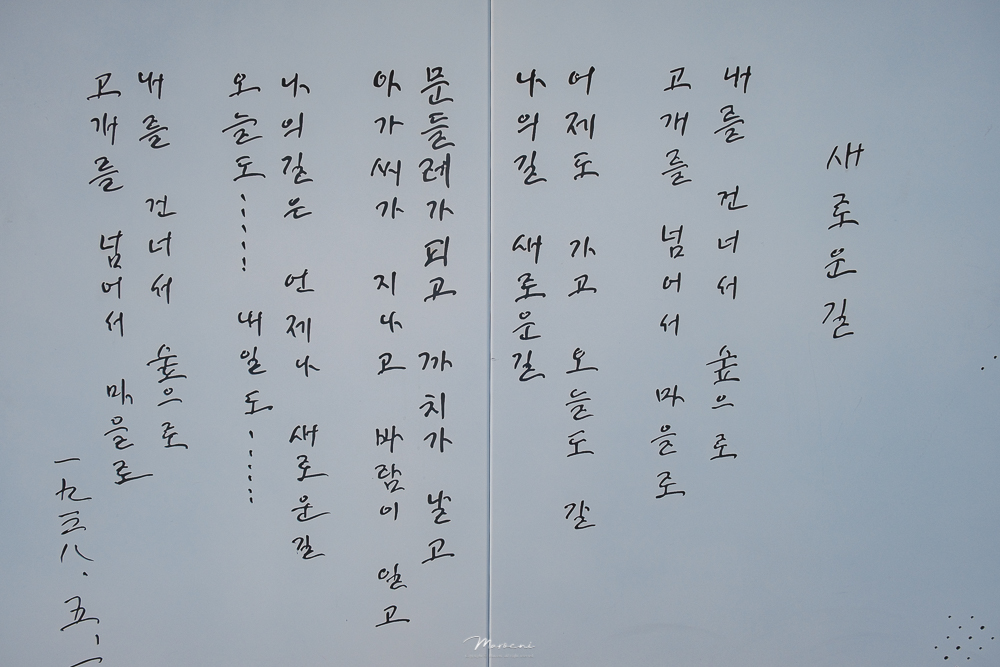 새로운 길
내를 건너서 숲으로
고개를 넘어서 마을로
어제도 가고 오늘도 갈
나의 길 새로운 길
문들레가 피고 까치가 날고
아가씨가 지나고 바람이 일고
나의 길은 언제나 새로운 길
오늘도…… 내일도……
내를 건너서 숲으로
고개를 넘어서 마을로
一九三八．五．一